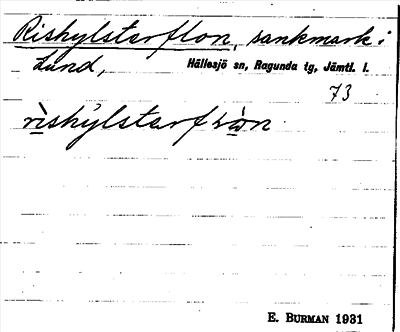 Rishylsterflon, sankmark i
Lund, Hällesjö sn, Ragunda tg, Jämtl. l.
73
E. BURMAN 1931